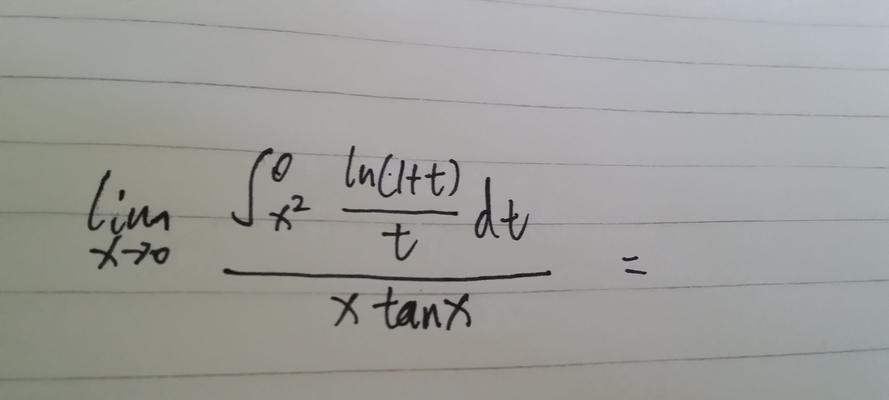 lim x→0 ∫_{x^2}^{0} \frac{ln(1+t)}{t} dt =
x tanx